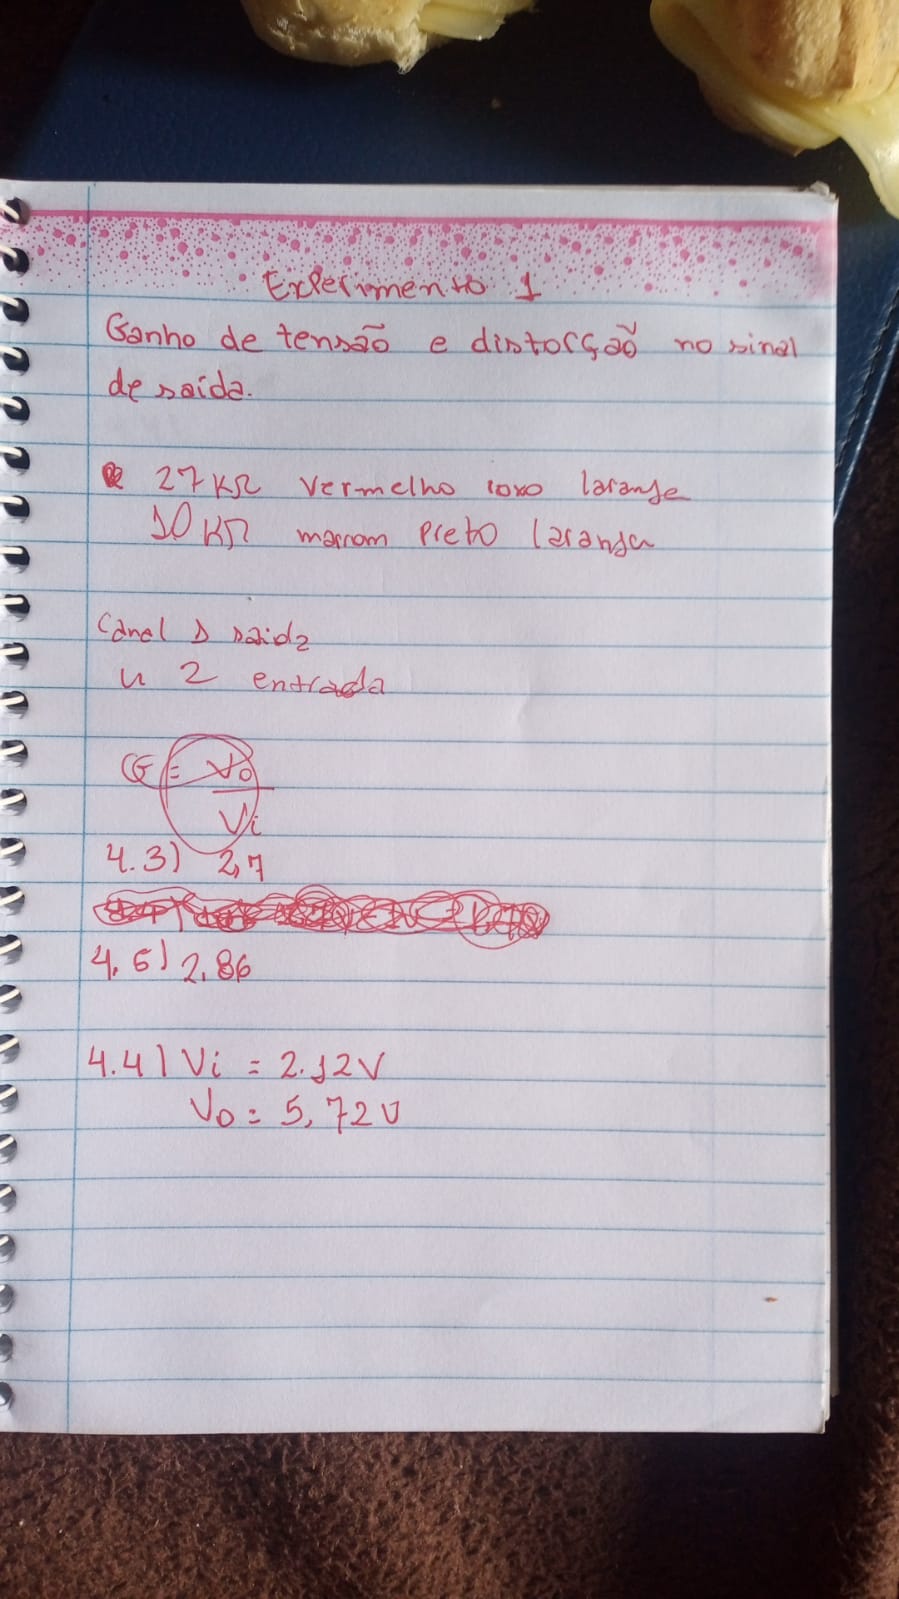 Experimento 1
Ganho de tensão e distorção no sinal
de saída.
27 KΩ vermelho roxo laranje
10 KΩ marrom Preto laranja
Canal 1 saida
u 2 entrada
G = Vo
Vi
4.3) 2,7
4.5) 2.86
4.4) Vi = 2.12V
Vo = 5,72V